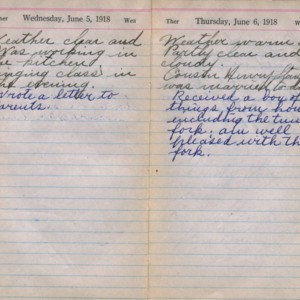 Wednesday, June 5, 1918 Wea
eather clear and
Was working in
e kitchen
inging class in
he evening.
Wrote a letter to
parents.
Ther Thursday, June 6, 1918 Wea
Weather warm
Partly clear and
cloudy.
Cousin Henry
was married tod
Received a box of
things from ho
including the tun
fork, am well
pleased with th
fork.